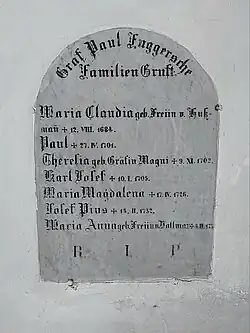 Graf Paul Fuggersche
Familien Gruft.
Maria Claudia geb. Freiin v. Huß-
man + 12. VIII. 1684.
Paul + 27. IV. 1701.
Theresia geb. Gräfin Magni + 9. XI. 1702.
Karl Josef + 10. I. 1705.
Maria Magdalena + 17. IV. 1726.
Josef Pius + 14. II. 1732.
Maria Anna geb. Freiin
R I P